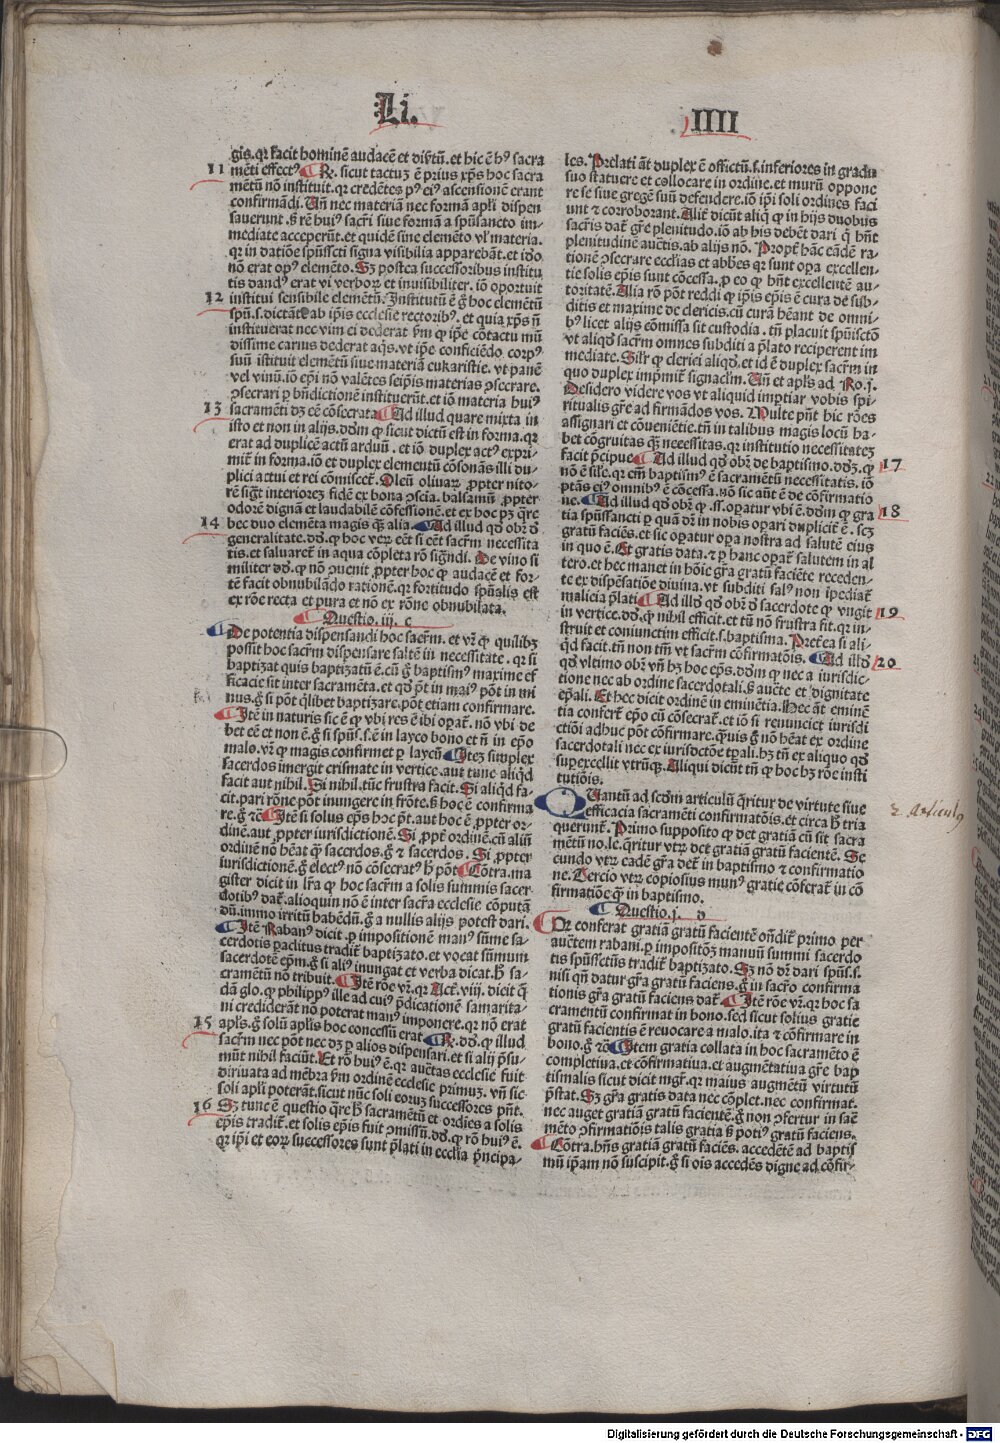 Li. IIII
gis.qr facit hominē audacē et diƀtū.et hic ē hꝰ sacra
11 mēti effectꝰ R̃. sicut tactuꝫ ē prius xp̄s hoc sacra
mētū nō instituit.qr credētes pꝰ eiꝰ ascensionē erant
confirmādi. Uñ nec materiā nec formā apl̄i dispen
sauerunt.ꝫ rē huiꝰ sacr̄i siue formā a spūsancto im-
mediate acceperūt.et quidē sine elemēto vl̄ materia.
qr in datiōe spūscti signa visibilia apparebāt.et iđo
nō erat opꝰ elemēto. Sꝫ postea successoribus institu
tis dandꝰ erat vi verboꝝ et inuisibiliter. iō oportuit
12 institui sensibile elemētū. Institutū ē g̃ hoc elemētū
spūs.dictāte ab ip̄is ecclesie rectoribꝰ. et quia xp̄s nō
instituerat nec vim ei dederat vm̄ qꝫ ip̄e cōtactu mū
dissime carnis dederat aq̄s.vt ip̄e conficiēdo corpꝰ
suū īstituit elemētū siue materiā eukaristie. vt panē
vel vinū.iō ep̄i nō valētes seip̄is materias ꝯsecrare.
ꝯsecrari ꝑ bñdictionē instituerūt.et iō materia huiꝰ
13 sacramēti dꝫ eē cōsecrata Ad illud quare mixta in
isto et non in alijs.dōm̄ ꝙ sicut dictū est in forma.qr
erat ad duplicē actū arduū. et iō duplex actꝰ expri-
mit̄ in forma.iō et duplex elementū cōsonās illi du-
plici actui et rei cōmiscet̄. Oleū oliuaꝝ ꝓpter nito-
rē sig̃t interiorez fidē ex bona ꝯscia. balsamū ꝓpter
odorē dignā et laudabilē cōfessionē.et ex hoc pꝫ q̄re
14 hec duo elemēta magis q̄ꝫ alia. Ad illud qđ obr̄ đ
generalitate.dđ.ꝙ hoc veꝝ eēt si eēt sacrm̄ necessita
tis.et saluaret̄ in aqua cōpleta rō sig̃ndi. De vino si
militer dđ.ꝙ nō ꝯuenit ꝓpter hoc ꝙ audacē et for-
tē facit obnubilādo rationē.qr fortitudo spūalis est
ex rōe recta et pura et nō ex rōne obnubilata.
Questio. iij. c
De potentia dispensandi hoc sacrm̄. et vr̄ ꝙ quilibꝫ
possit hoc sacrm̄ dispensare saltē in necessitate. qr si
baptizat quis baptizatū ē.cū g̃ baptismꝰ maxime ef
ficacie sit inter sacramēta.et qđ pōt in maiꝰ pōt in mi
nus.g̃ si pōt q̄libet baptizare.pōt etiam confirmare.
Itē in naturis sic ē ꝙ vbi res ē ibi oꝑat̄. nō vbi de
bet eē et non ē.g̃ si spūs.s.ē in layco bono et ñ in ep̄o
malo.vr̄ ꝙ magis confirmet ꝑ laycū Itez simplex
sacerdos inungit crismate in vertice.aut tunc aliqđ
facit aut nihil. Si nihil.tūc frustra facit. Si aliqđ fa-
cit.pari rōne pōt inungere in frōte.ꝫ hoc ē confirma
re.g̃ ꝛc̄ Itē si solus ep̄s hoc p̄t.aut hoc ē ꝓpter or-
dinē.aut ꝓpter iurisdictionē. Si ꝓpt̄ ordinē.cū aliū
ordinē nō hēat ꝙ sacerdos.g̃ ⁊ sacerdos. Si ꝓpter
iurisdictionē.g̃ electꝰ nō cōsecratꝰ ħ pōt Cōtra.ma
gister dicit in lr̄a ꝙ hoc sacrm̄ a solis summis sacer
dotibꝰ dat̄. alioquin nō ē inter sacr̄a ecclesie cōputā
dū.immo irritū habēdū.g̃ a nullis alijs potest dari.
Itē Rabanꝰ dicit ꝑ impositionē manꝰ sūme sa-
cerdotis ꝑaclitus tradit̄ baptizato.et vocat sūmum
sacerdotē ep̄m.g̃ si aliꝰ inungat et verba dicat.ħ sa-
cramētū nō tribuit. Itē rōe vr̄.qr Act̄.viij. dicit q̄
dā glo.ꝙ philippꝰ ille ad cuiꝰ p̄dicationē samarita-
ni crediderāt nō poterat manꝰ imponere.qr nō erat
15 apl̄s.g̃ solū apl̄is hoc concessū erat R̃. dđ.ꝙ illud
sacrm̄ nec pōt nec dꝫ ꝑ alios dispensari.et si alij p̄su-
mūt nihil faciūt. Et rō huiꝰ ē.qr auc̄tas ecclesie fuit
diriuata ad mēbra ꝑm ordinē ecclesie primuꝫ. vñ sic-
soli apl̄i poterāt.sicut nūc soli eoruꝫ successores pñt.
16 Sꝫ tunc ē questio q̄re ħ sacramētū et ordies a solis
ep̄is tradit̄.et solis ep̄is fuit ꝯmissū.dđ.ꝙ rō huiꝰ ē.
qr ip̄i et eoꝝ successores sunt p̄lati in ecclīa p̄ncipa-
les. Prelati aūt duplex ē officiū.s.inferiores in gradu
suo statuere et collocare in ordine.et murū oppone
re se siue gregē suū defendere.iō ip̄i soli ordines faci
unt ⁊ corroborant. Alit̄ dicūt aliq̄ ꝙ in hijs duobus
sacr̄is dat̄ gr̄e plenitudo.iō ab his debēt dari q̄ hñt
plenitudinē auc̄tis.ab alijs nō. Propt̄ hāc eādē ra-
tionē ꝯsecrare ecclīas et abbēs qr sunt oꝑa excellen-
tie solis ep̄is sunt cōcessa. ꝓ eo ꝙ hñt excellentē au-
toritatē. Alia rō pōt reddi ꝙ ip̄is ep̄is ē cura de sub-
ditis et maxime de clericis.cū curā hēant de omni-
bꝰ licet alijs cōmissa sit custodia. tñ placuit spūisctō
vt aliqđ sacrm̄ omnes subditi a p̄lato reciperent im
mediate. Silr̄ ꝙ clerici aliqđ.et id ē duplex sacrm̄ in
quo duplex imprimit̄ signaclm̄. Uñ et apl̄s ad Ro.j.
Desidero videre vos vt aliquid imꝑtiar vobis spi-
ritualis gr̄e ad firmādos vos. Multe pñt hic rōes
assignari et cōueniētie.tñ in talibus magis locū ha-
bet cōgruitas q̄ꝫ necessitas.qr institutio necessitatez
facit p̄cipue Ad illud qđ obr̄ de baptismo.dđꝫ.ꝙ 17
nō ē sile.qr cm̄ baptismꝰ ē sacramētū necessitatis. iō
ptās eiꝰ omnibꝰ ē cōcessa.nō sic aūt ē de cōfirmatio
ne. Ad illud qđ obr̄ ꝙ .ss.oꝑatur vbi ē.dōm̄ ꝙ gra 18
tia spūssancti ꝑ quā dr̄ in nobis oꝑari duplicit̄ ē. scꝫ
gratū faciēs.et sic oꝑatur oꝑa nostra ad salutē eius
in quo ē. Et gratis data.⁊ ꝑ hanc oꝑat̄ salutem in al
tero.et hec manet in hōie gr̄a gratū faciēte receden-
te ex dispēsatiōe diuina.vt subditi salꝰ non īpediat̄
malicia p̄lati Ad illđ qđ obr̄ đ sacerdote ꝙ vngit 19
in vertice.dđ.ꝙ nihil efficit.et tū nō frustra fit.qr in-
struit et coniunctim efficit.s.baptisma. Pret̄ea si ali-
q̄d facit.tñ non tm̄ vt sacrm̄ cōfirmatōis. Ad illđ 20
qđ vltimo obr̄ vñ hꝫ hoc ep̄s.dōm̄ ꝙ nec a iurisdic-
tione nec ab ordine sacerdotali.ꝫ auc̄te et dignitate
ep̄ali. Et hec dicit ordinē in eminētia. Hec āt eminē
tia confert̄ ep̄o cū cōsecrat̄.et iō si renunciet iurisdi
ctiōi adhuc pōt cōfirmare.q̄uis g̃ nō hēat ex ordine
sacerdotali nec ex iurisdctōe tꝑali.hꝫ tñ ex aliquo qđ
suꝑexcellit vtrūqꝫ. Aliqui dicūt tñ ꝙ hoc hꝫ rōe insti
tutiōis.
Quantū ad scđm articulū q̄ritur de virtute siue
efficacia sacramēti confirmatōis.et circa ħ tria
querunt̄. Primo supposito ꝙ det gratiā cū sit sacra
mētū no.le.q̄ritur vtꝝ det gratiā gratū facientē. Se
cundo vtꝝ eādē gr̄a det̄ in baptismo ⁊ confirmatio
ne. Tercio vtꝝ copiosius munꝰ gratie cōferat̄ in cō
firmatiōe q̄ꝫ in baptismo.
2. Articulꝰ
Questio.j. d
Or conferat gratiā gratū facientē oñdit̄ primo per
auc̄tem rabani.ꝑ impositōꝫ manuū summi sacerdo
tis spūssctūs tradit̄ baptizato. Sꝫ nō dr̄ dari spūs.s.
nisi qñ datur gr̄a gratū faciens.g̃ in sacr̄o confirma
tionis gr̄a gratū faciens dat̄. Itē rōe vr̄.qr hoc sa
cramentū confirmat in bono.sed sicut solius gratie
gratū facientis ē reuocare a malo.ita ⁊ cōfirmare in
bono.g̃ ꝛc̄ Item gratia collata in hoc sacramēto ē
completiua.et cōfirmatiua.et augmētatiua gr̄e bap
tismalis sicut dicit mgr̄.qr maius augmētū virtutū
p̄stat. Sꝫ gr̄a gratis data nec cōplet.nec confirmat.
nec auget gratiā gratū facientē.g̃ non ꝯfertur in saē
mēto ꝯfirmatiōis talis gratia ꝫ potiꝰ gratū faciens.
Cōtra.hñs gratiā gratū faciēs. accedētē ad baptis
mū ip̄am nō suscipit.g̃ si oīs accedēs digne ad cōfir-
Digitalisierung gefördert durch die Deutsche Forschungsgemeinschaft - DFG